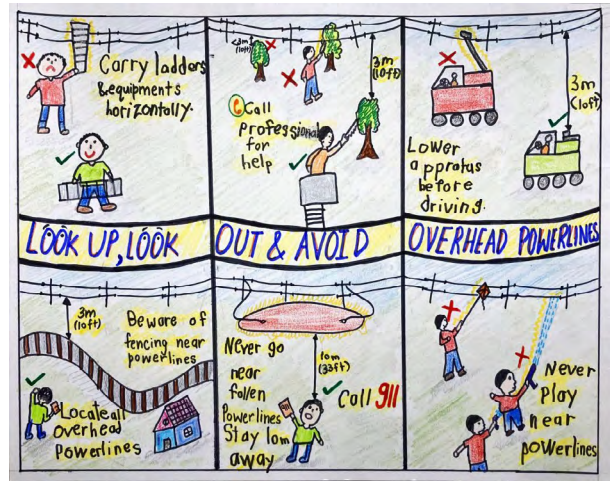 Carry ladders
& equipments
horizontally.
<3m
(10ft)
3m
(10ft)
Call
professional
for
help
3m
(10ft)
Lower
appratus
before
driving.
LOOK UP, LOOK OUT & AVOID OVERHEAD POWERLINES
3m
(10ft)
Beware of
fencing near
powerlines
Locate all
Overhead
Powerlines
Never go
near
fallen
Powerlines
Stay 10m
away
10m
(33ft)
Call 911
Never
Play
near
powerlines